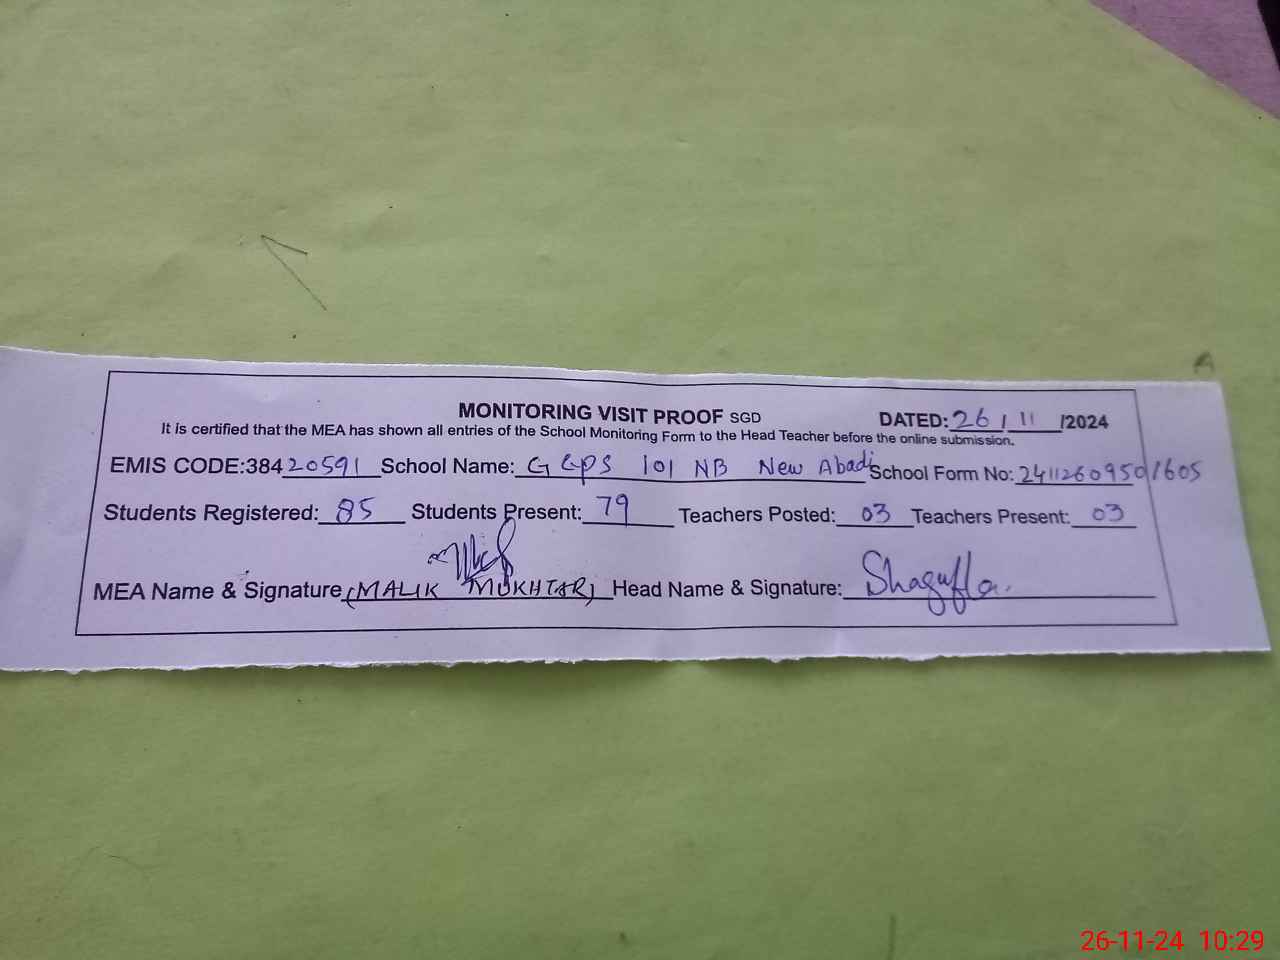 MONITORING VISIT PROOF SGD DATED: 26/11/2024
It is certified that the MEA has shown all entries of the School Monitoring Form to the Head Teacher before the online submission.
EMIS CODE:38420591 School Name: GGPS 101 NB New Abadi School Form No: 24112609501605
Students Registered: 85 Students Present: 79 Teachers Posted: 03 Teachers Present: 03
MEA Name & Signature (MALIK MUKHTAR) Head Name & Signature: Shagufta
26-11-24 10:29